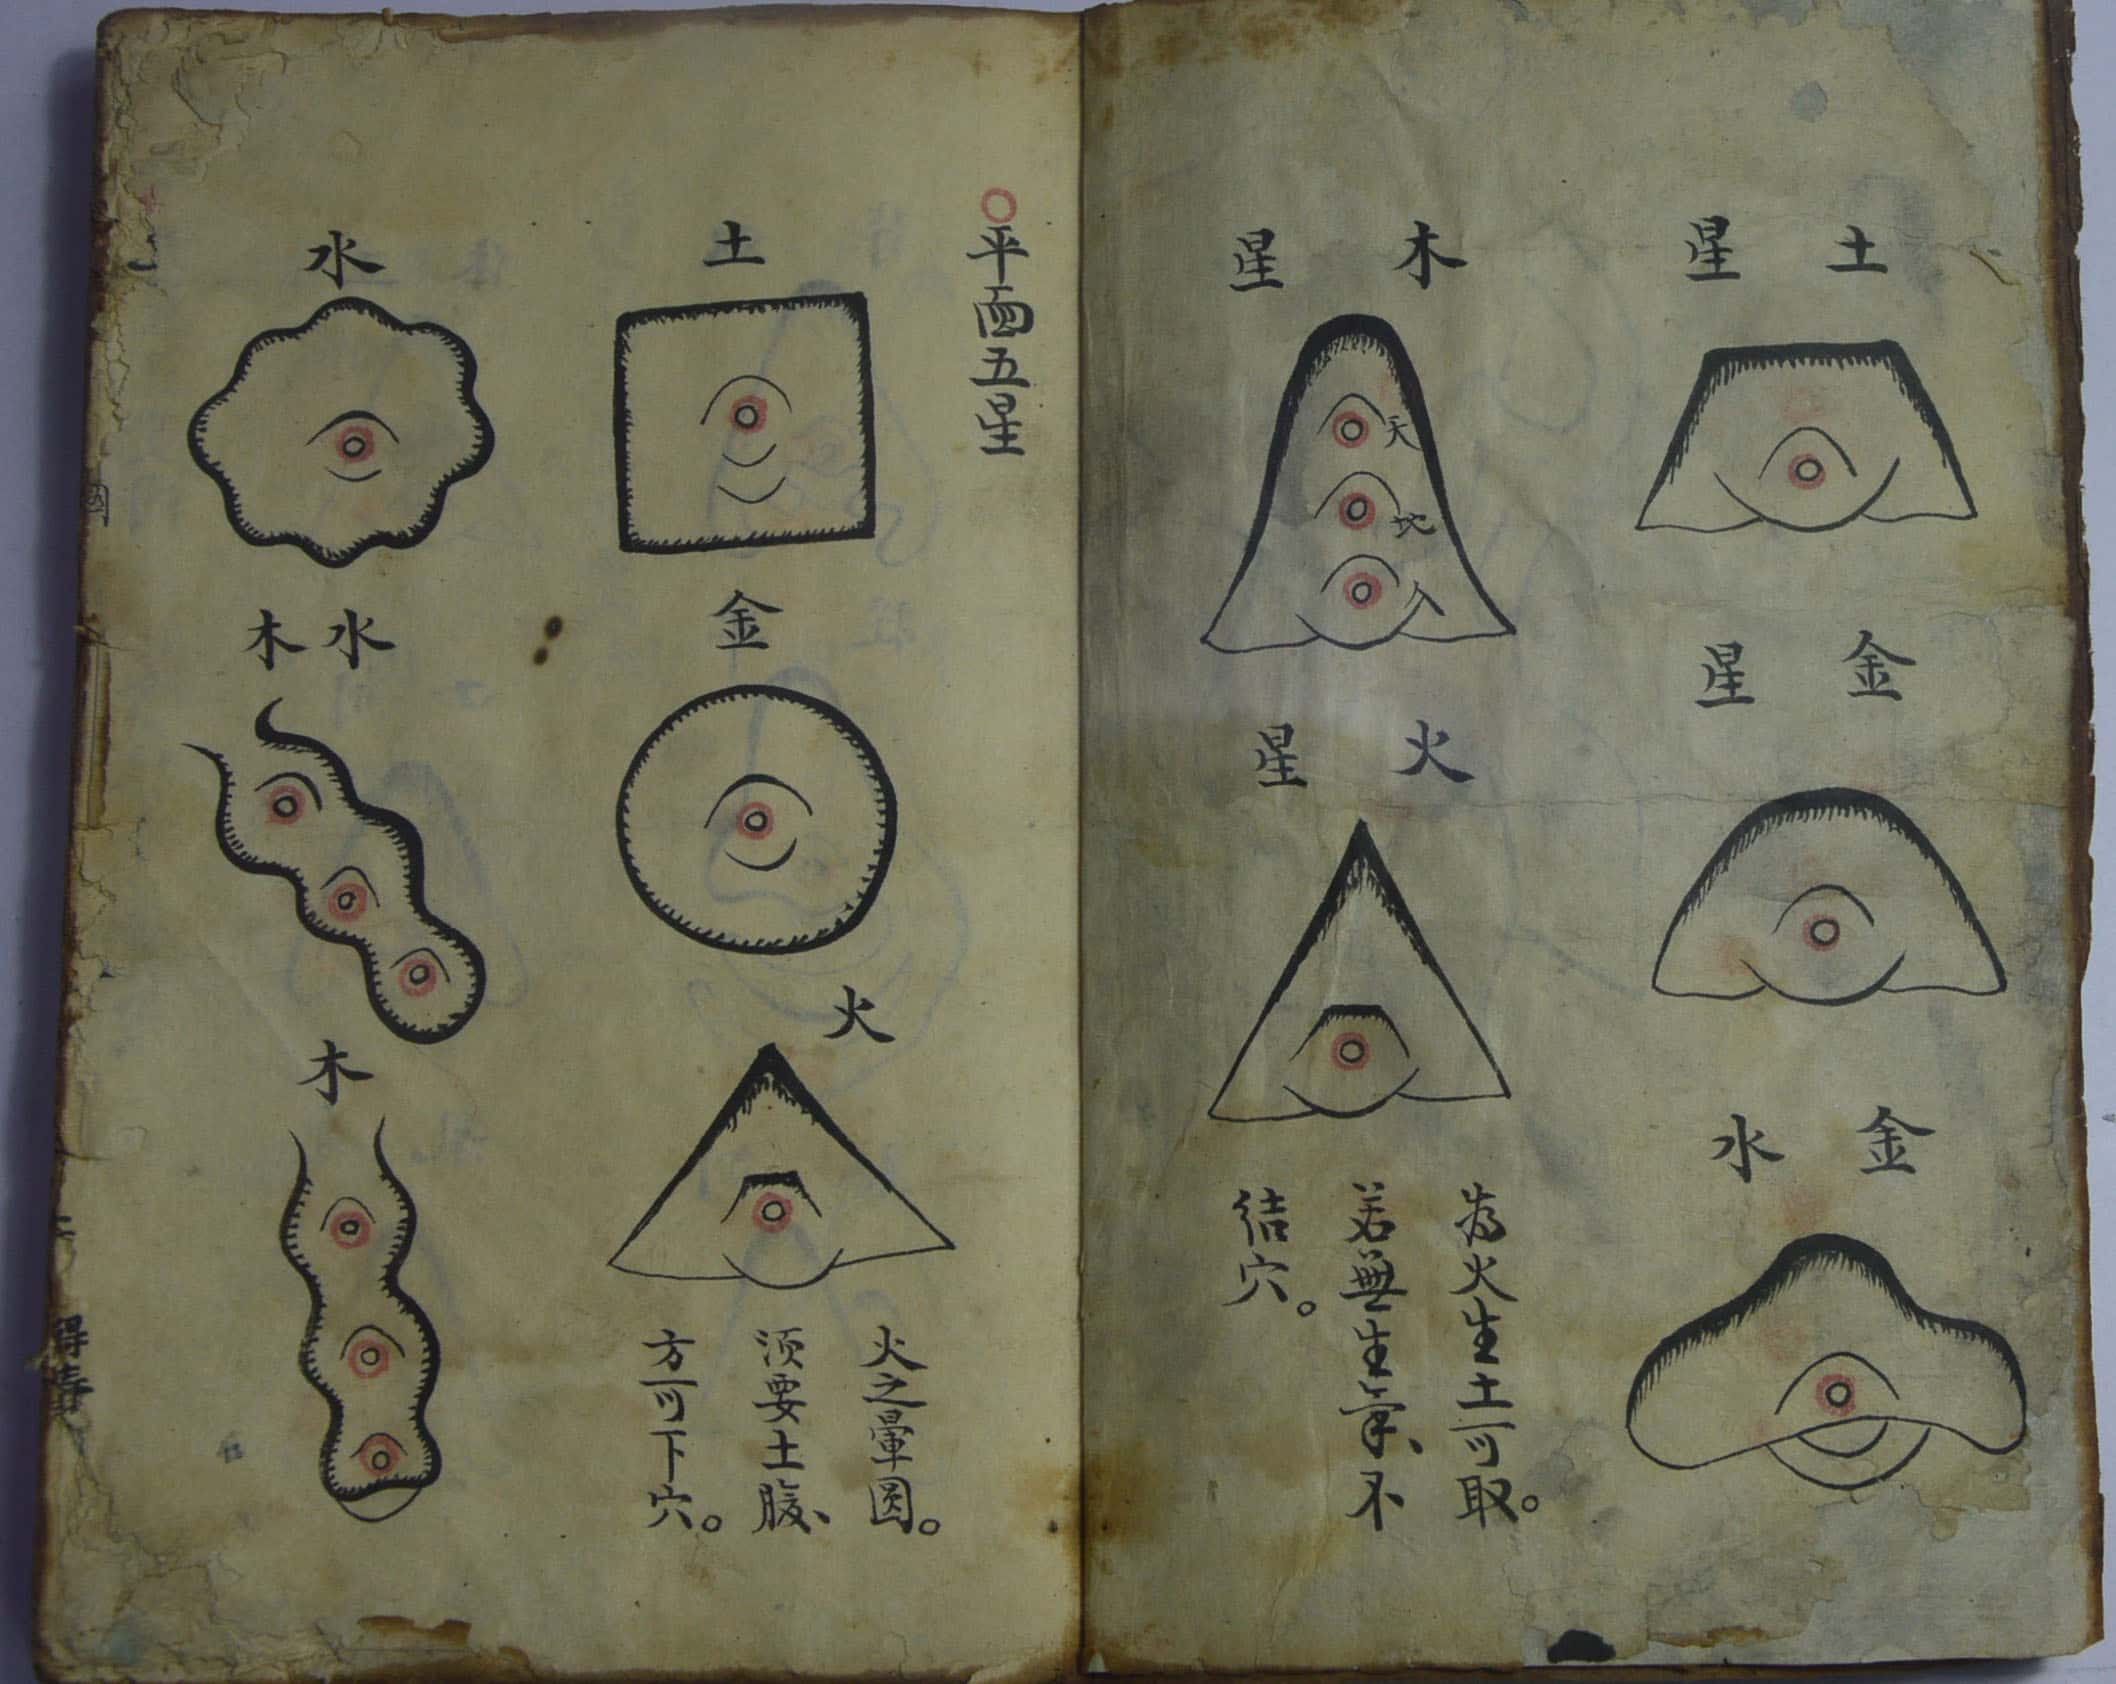 土星
金星
金水
木星
天
地
人
火星
為火生土可取。
若無生气、不
结穴。
平面五星
土
金
火
火之暈圓。
须要土腹、
方可下穴。
水
水木
木